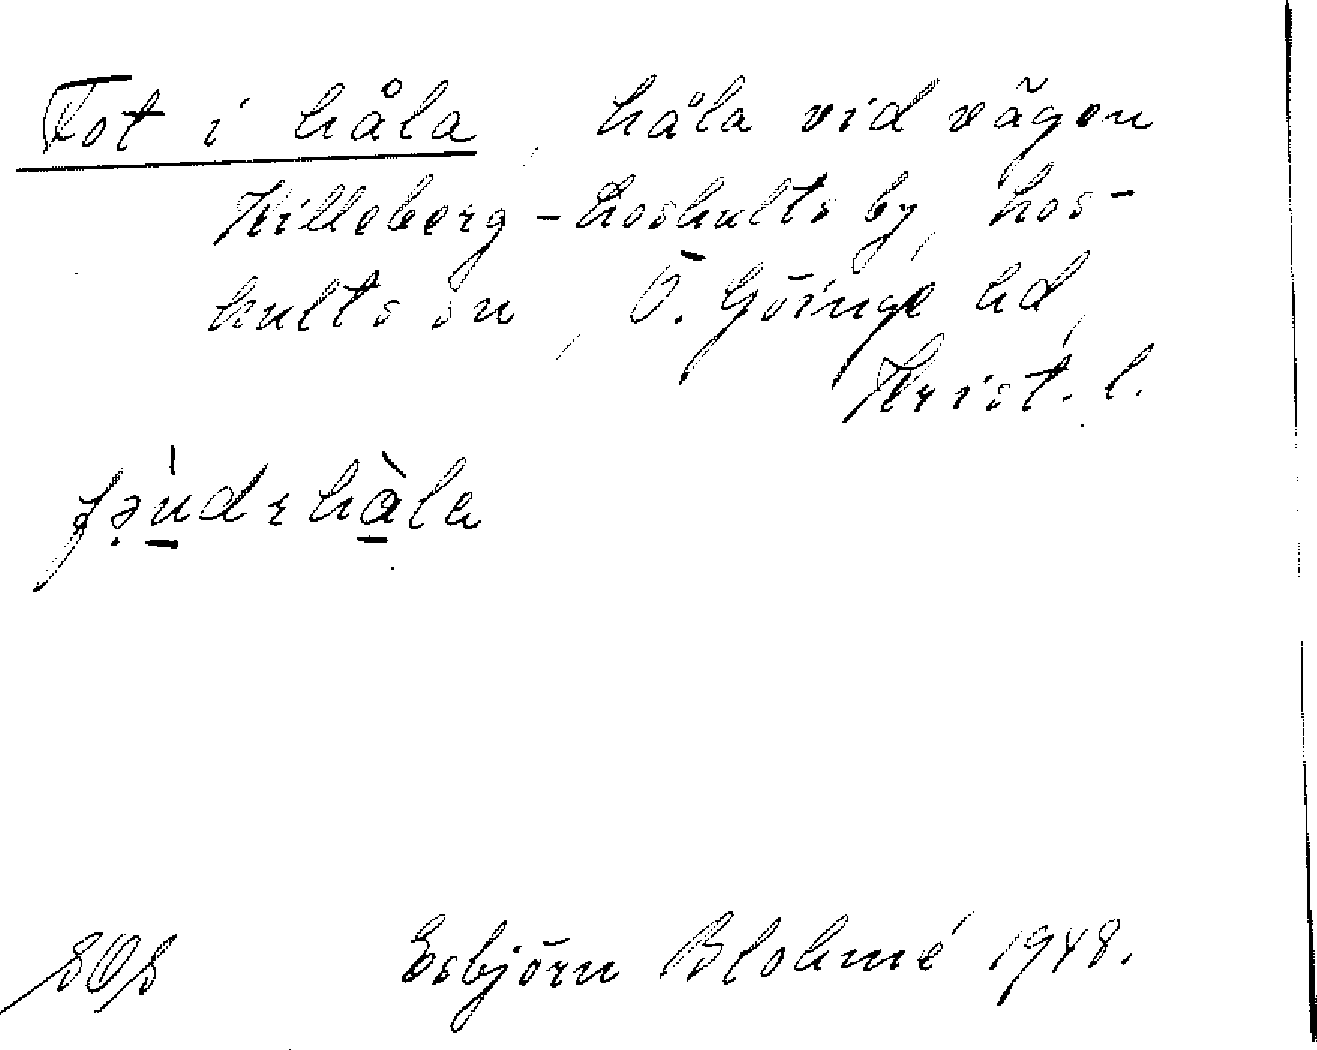 Tot i håla, håla vid vägen
Killeberg - Loshults by, Los-
hults sn, Ö. Göinge hd,
Krist. l.
Esbjörn Blohmé 1948.